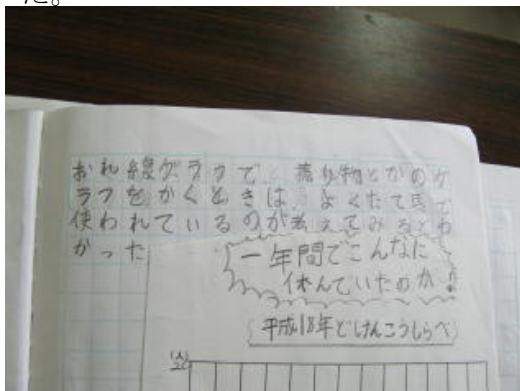 た。
おれ線グラフで 乗り物とかのグ
ラフをかくときは よくたて馬で
使われているのが考えてみるとわ
かった
一年間でこんなに
休んでいたのか!
平成18年どけんこうしらべ
(人)
20